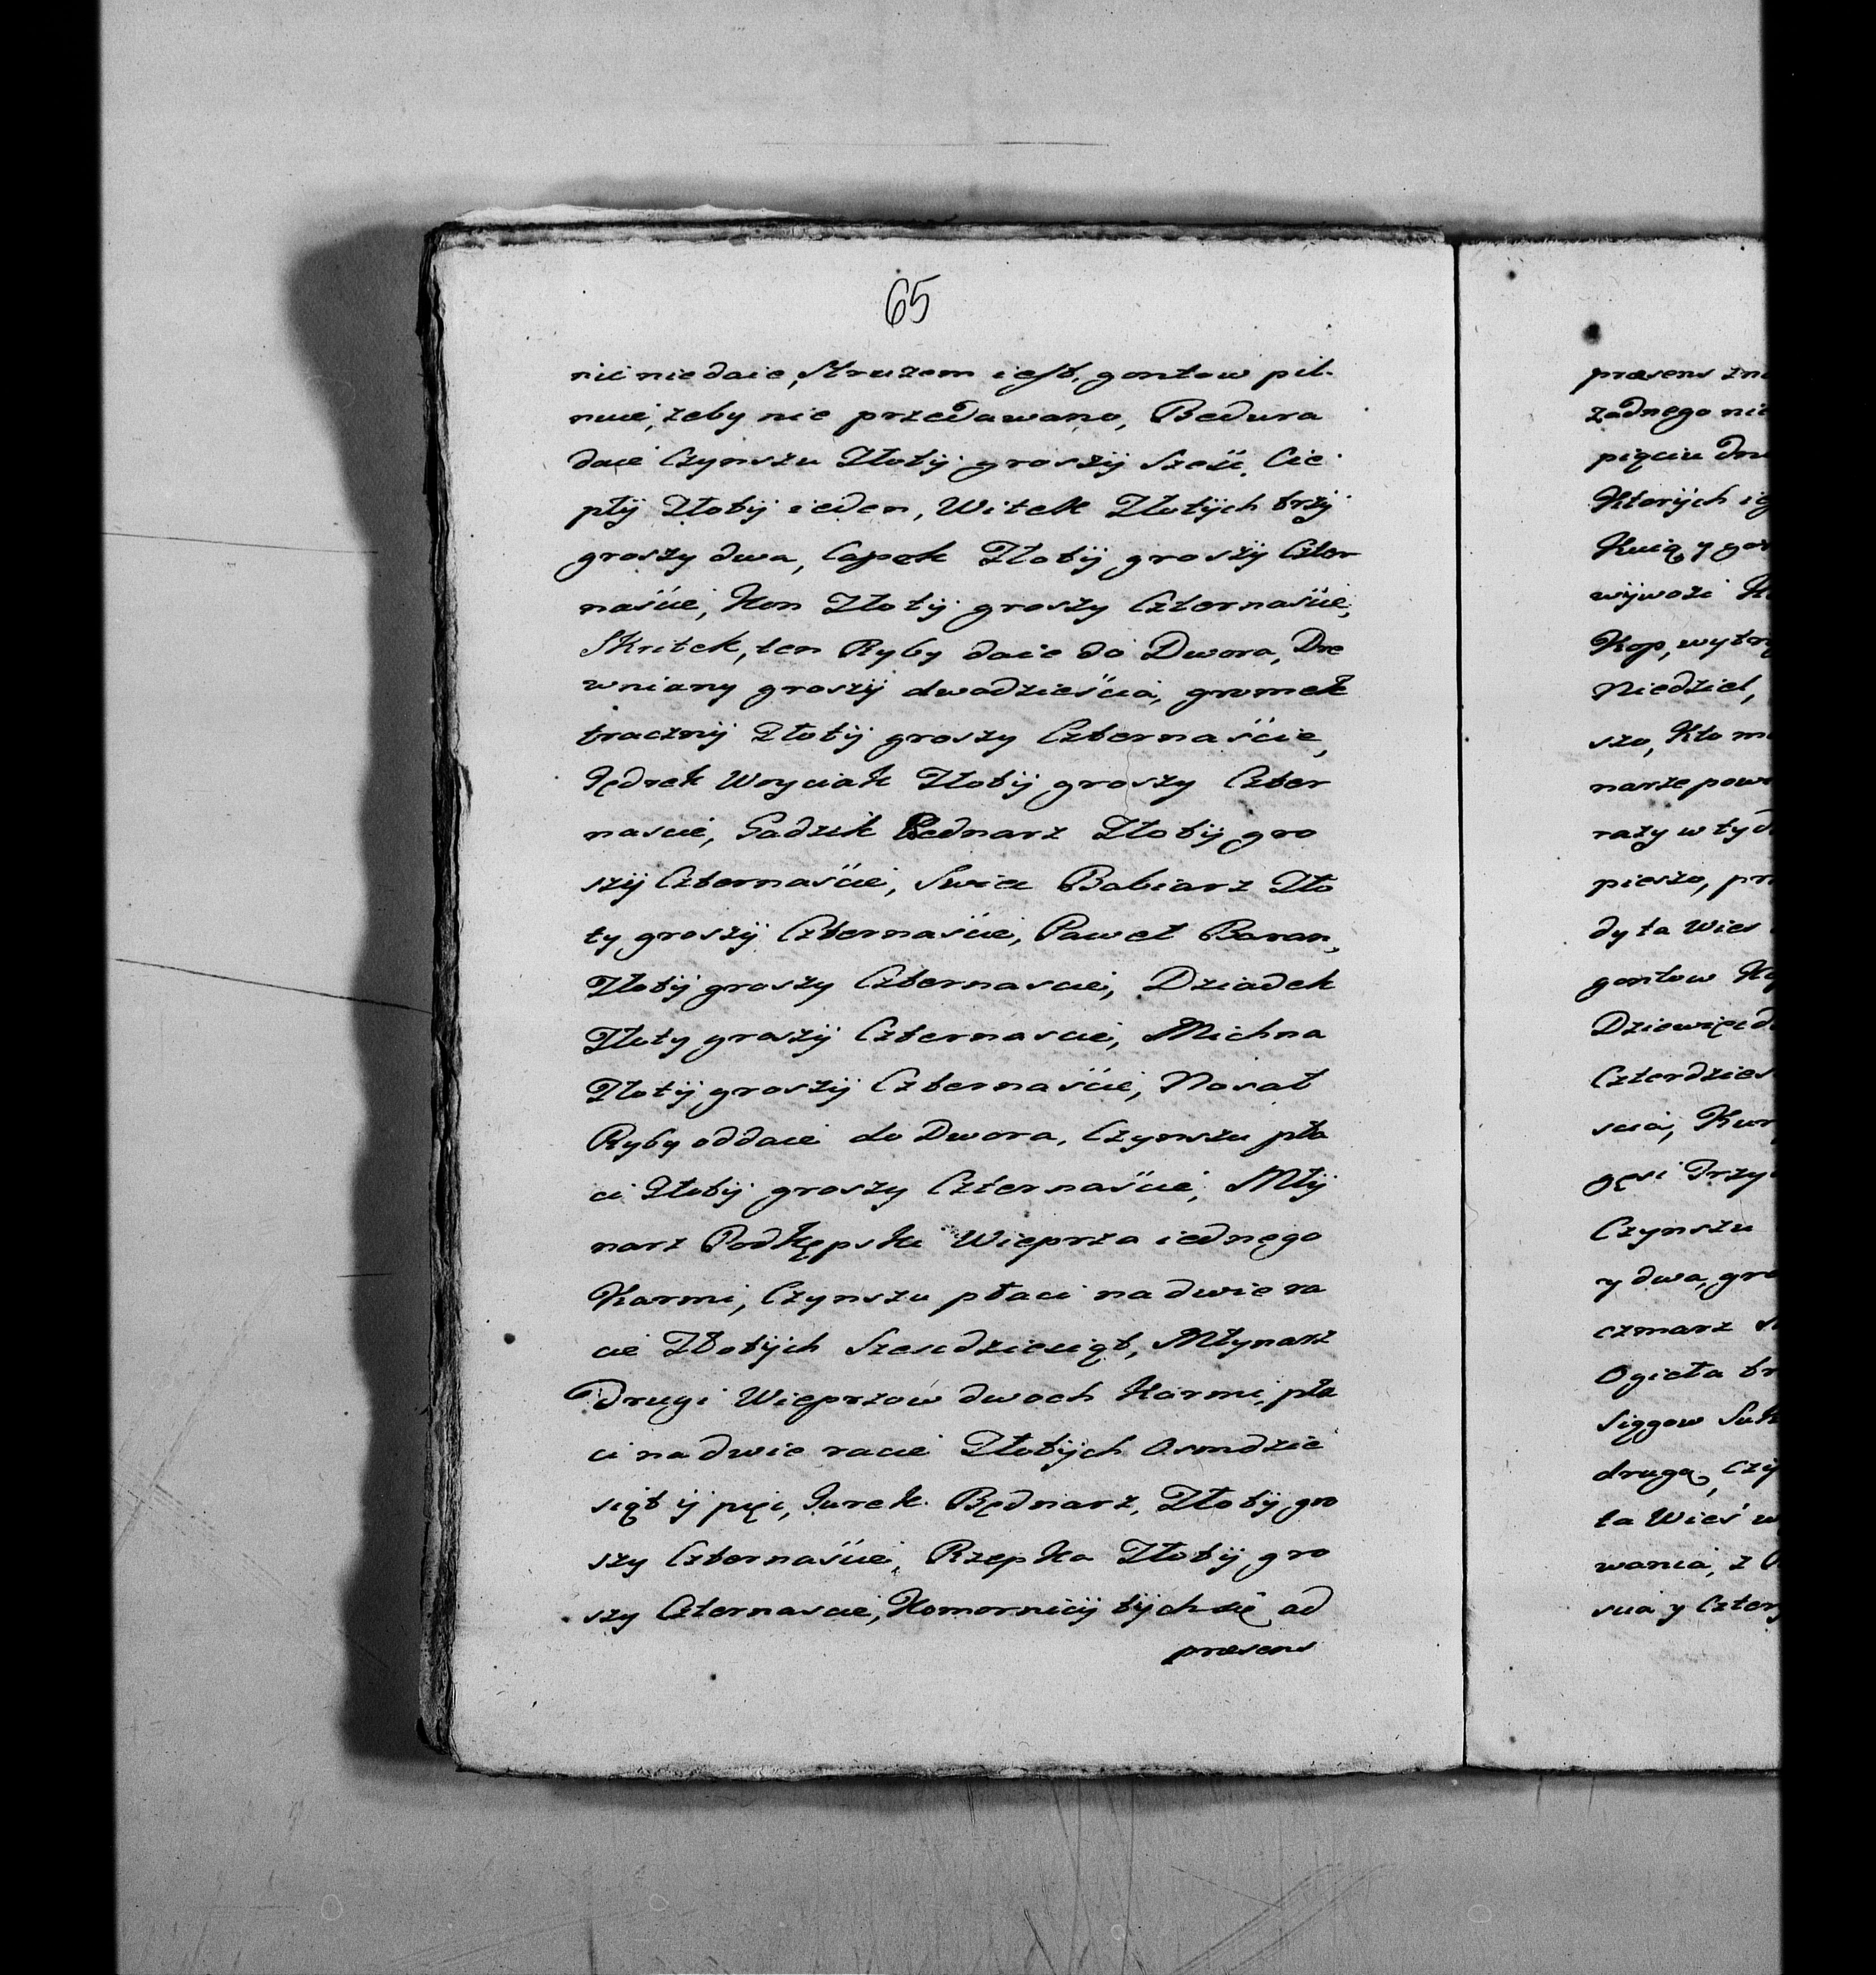 65
nic niedaie, Struzem iest, gontow pil-
nuie, zeby nie przedawano, Bedura
daie Czynszu Złotÿ groszÿ Szesc, Cie
płÿ Złotÿ ieden, Witek Złotÿch trzÿ
groszy dwa, Capek Złotÿ groszÿ Czter
naście, Kon Złotÿ groszy Czternaście,
Skritek, ten Ryby daie do Dwora, Dre
wniany groszÿ dwadzieścia, gromek
tracznÿ Złotÿ groszy Czternaście,
Jędrek Woyciak Złotÿ groszy Czter
nascie, Gadzik Bednarz Złotÿ gro
szÿ Czternaście, Swiec Babiarz Zło
ty groszÿ Czternaście, Paweł Baran,
Złotÿ groszy Czternascie, Dziadek
Złoty groszÿ Czternascie, Michna
Złotÿ groszÿ Czternaście, Nosal
Ryby oddaie do Dwora, Czynszu pła
ci Złotÿ groszy Czternaście, Młÿ
narz Podkępski Wieprza iednego
Karmi, Czynszu płaci na dwie ra
cie Złotÿch Szescdziesiąt, Młynarz
Drugi Wieprzow dwoch Karmi, pła
ci na dwie racie Złotÿch Osmdzie
siąt ÿ pięc, Jurek Będnarz, Złotÿ gro
szy Czternaście, Rzepka Złotÿ gro
szy Czternascie, Komornicÿ tÿch się ad
præsens
præsens
zadnego
pięciu
Ktorÿch
Kuią y
wÿwozi
Kop,
Niedziel,
szo, Kto
narze
razy w
pieszo,
dy ta Wies
gontow
Dziewięcd
Czterdzies
scia,
gęsi Trzy
Czynszu
y dwa,
czmarz
Ogieta
Siggow
drugą,
ta Wieś
wania, z
scia y Cztery